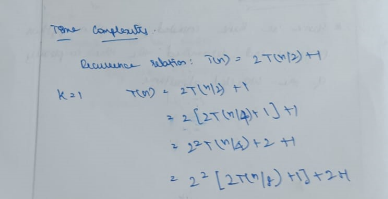 Time Complexity.
Recurrence relation: T(n) = 2T(n/2) + 1
K=1 T(n) = 2T(n/2) + 1
= 2 [2T(n/4)+1] + 1
= 2² T(n/4) + 2 + 1
= 2² [2T(n/8) + 1] + 2+1